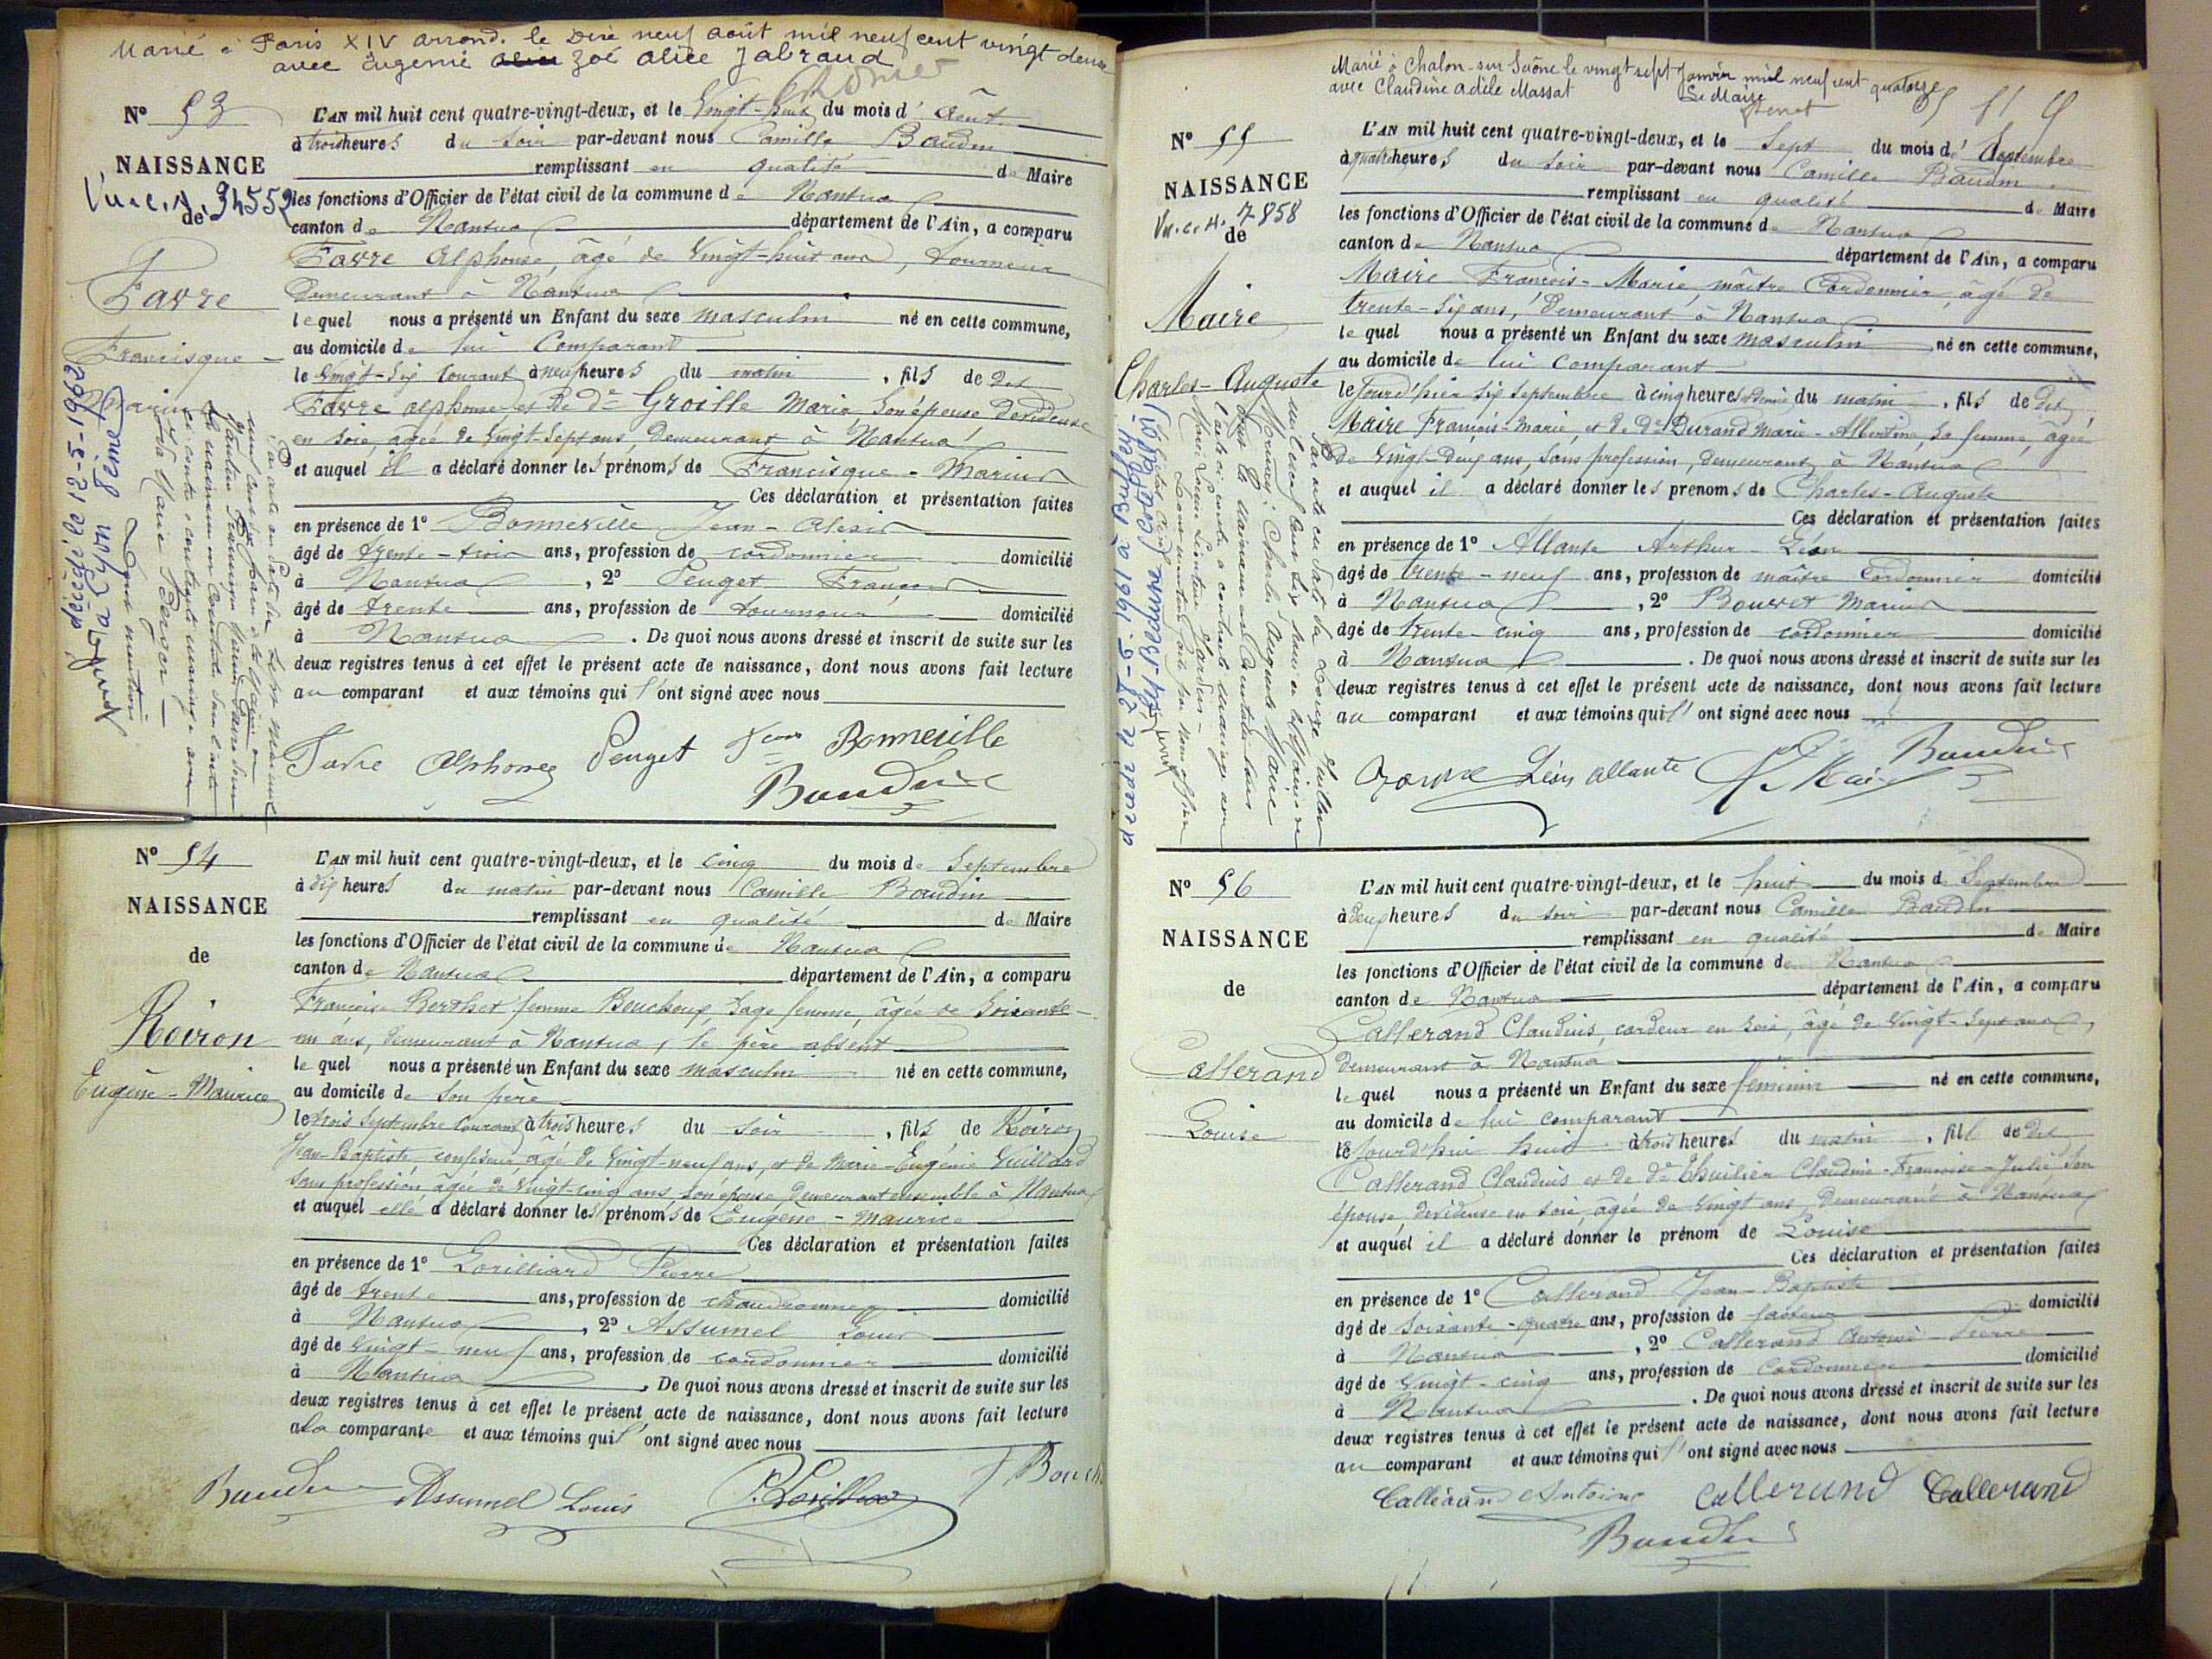 Marié à Paris XIV arrond. le dix neuf août mil neuf cent vingt deux
avec Eugénie Zoé Alice Jabraud
N° 53
NAISSANCE
de
Favre
Francisque -
Marius
L'AN mil huit cent quatre-vingt-deux, et le Vingt-huit du mois d' Août
à trois heures du soir par-devant nous Camille Baudin
remplissant en qualité de Maire
les fonctions d'Officier de l'état civil de la commune de Nantua
canton de Nantua département de l'Ain, a comparu
Favre Alphonse, âgé de Vingt-huit ans, tourneur
demeurant à Nantua
lequel nous a présenté un Enfant du sexe masculin né en cette commune,
au domicile de lui Comparant
le Vingt-six courant à neuf heures du matin, fils de dit
Favre alphonse et de de Groille Maria son épouse devideuse
en soie, âgée de Vingt-sept ans, demeurant à Nantua
et auquel il a déclaré donner les prénoms de Francisque-Marius
Ces déclaration et présentation faites
en présence de 1° Bonneville Jean-Alexis
âgé de trente-trois ans, profession de cordonnier domicilié
à Nantua, 2° Peuget François
âgé de trente ans, profession de tourneur domicilié
à Nantua. De quoi nous avons dressé et inscrit de suite sur les
deux registres tenus à cet effet le présent acte de naissance, dont nous avons fait lecture
au comparant et aux témoins qui l'ont signé avec nous
Favre Alphonse Peuget Jean Bonneville
Baudin
décédé le 12-5-1962
à Lyon 8ème
N° 54
NAISSANCE
de
Roiron
Eugène-Maurice
L'AN mil huit cent quatre-vingt-deux, et le cinq du mois de Septembre
à dix heures du matin par-devant nous Camille Baudin
remplissant en qualité de Maire
les fonctions d'Officier de l'état civil de la commune de Nantua
canton de Nantua département de l'Ain, a comparu
Françoise Berthet femme Boucheux, sage femme, âgée de soixante-
un ans, demeurant à Nantua, le père absent
lequel nous a présenté un Enfant du sexe masculin né en cette commune,
au domicile de son père
le trois Septembre courant à trois heures du soir, fils de Roiron
Jean-Baptiste confiseur âgé de Vingt-neuf ans, et de Marie-Eugénie Guillard
sans profession âgée de vingt-cinq ans son épouse demeurant ensemble à Nantua
et auquel elle a déclaré donner les prénoms de Eugène-Maurice
Ces déclaration et présentation faites
en présence de 1° Lorilliard Pierre
âgé de trente ans, profession de chaudronnier domicilié
à Nantua, 2° Assumel Louis
âgé de Vingt-neuf ans, profession de cordonnier domicilié
à Nantua. De quoi nous avons dressé et inscrit de suite sur les
deux registres tenus à cet effet le présent acte de naissance, dont nous avons fait lecture
à la comparante et aux témoins qui l'ont signé avec nous
Baudin Assumel Louis P. Lorilliard f Bouch
Marié à Chalon-sur-Saône le vingt sept Janvier mil neuf cent quatorze
avec Claudine Adèle Massat
Le Maire
N° 55
NAISSANCE
7858
de
Maire
Charles-Auguste
L'AN mil huit cent quatre-vingt-deux, et le Sept du mois de Septembre
à quatre heures du soir par-devant nous Camille Baudin
remplissant en qualité de Maire
les fonctions d'Officier de l'état civil de la commune de Nantua
canton de Nantua département de l'Ain, a comparu
Maire François-Marie, maître Cordonnier, âgé de
trente-six ans, demeurant à Nantua
lequel nous a présenté un Enfant du sexe masculin né en cette commune,
au domicile de lui comparant
le jour d'hier six septembre à cinq heures et demie du matin, fils de dit
Maire François-Marie, et de de Durand Marie-Albertine, sa femme, âgée
de Vingt-deux ans, sans profession, demeurant à Nantua
et auquel il a déclaré donner les prénoms de Charles-Auguste
Ces déclaration et présentation faites
en présence de 1° Allante Arthur Léon
âgé de trente-neuf ans, profession de maître Cordonnier domicilié
à Nantua, 2° Bouvet Marius
âgé de trente-cinq ans, profession de cordonnier domicilié
à Nantua. De quoi nous avons dressé et inscrit de suite sur les
deux registres tenus à cet effet le présent acte de naissance, dont nous avons fait lecture
au comparant et aux témoins qui l'ont signé avec nous
Léon Allante Maire Baudin
N° 56
NAISSANCE
de
Callerand
Louise
L'AN mil huit cent quatre-vingt-deux, et le huit du mois de Septembre
à deux heures du soir par-devant nous Camille Baudin
remplissant en qualité de Maire
les fonctions d'Officier de l'état civil de la commune de Nantua
canton de Nantua département de l'Ain, a comparu
Callerand Claudius, cardeur en soie, âgé de Vingt-sept ans,
demeurant à Nantua
lequel nous a présenté un Enfant du sexe féminin né en cette commune,
au domicile de lui comparant
le jourd'hui huit à trois heures du matin, fille de dit
Callerand Claudius et de de Thuilier Claudine-Françoise-Julie son
épouse, devideuse en soie, âgée de Vingt ans, demeurant à Nantua
et auquel il a déclaré donner le prénom de Louise
Ces déclaration et présentation faites
en présence de 1° Callerand Jean-Baptiste
âgé de soixante-quatre ans, profession de facteur domicilié
à Nantua, 2° Callerand Antoine-Pierre
âgé de Vingt-cinq ans, profession de Cordonnier domicilié
à Nantua. De quoi nous avons dressé et inscrit de suite sur les
deux registres tenus à cet effet le présent acte de naissance, dont nous avons fait lecture
au comparant et aux témoins qui l'ont signé avec nous
Callerand Antoine Callerand Callerand
Baudin